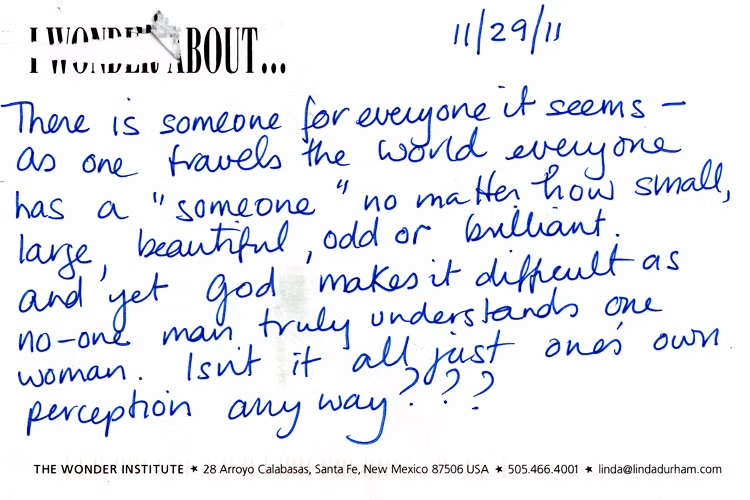 I WONDER ABOUT...
11/29/11
There is someone for everyone it seems —
as one travels the world everyone
has a "someone" no matter how small,
large, beautiful, odd or brilliant.
and yet God makes it difficult as
no-one man truly understands one
woman. Isn't it all just one's own
perception any way???
THE WONDER INSTITUTE ★ 28 Arroyo Calabasas, Santa Fe, New Mexico 87506 USA ★ 505.466.4001 ★ linda@lindadurham.com